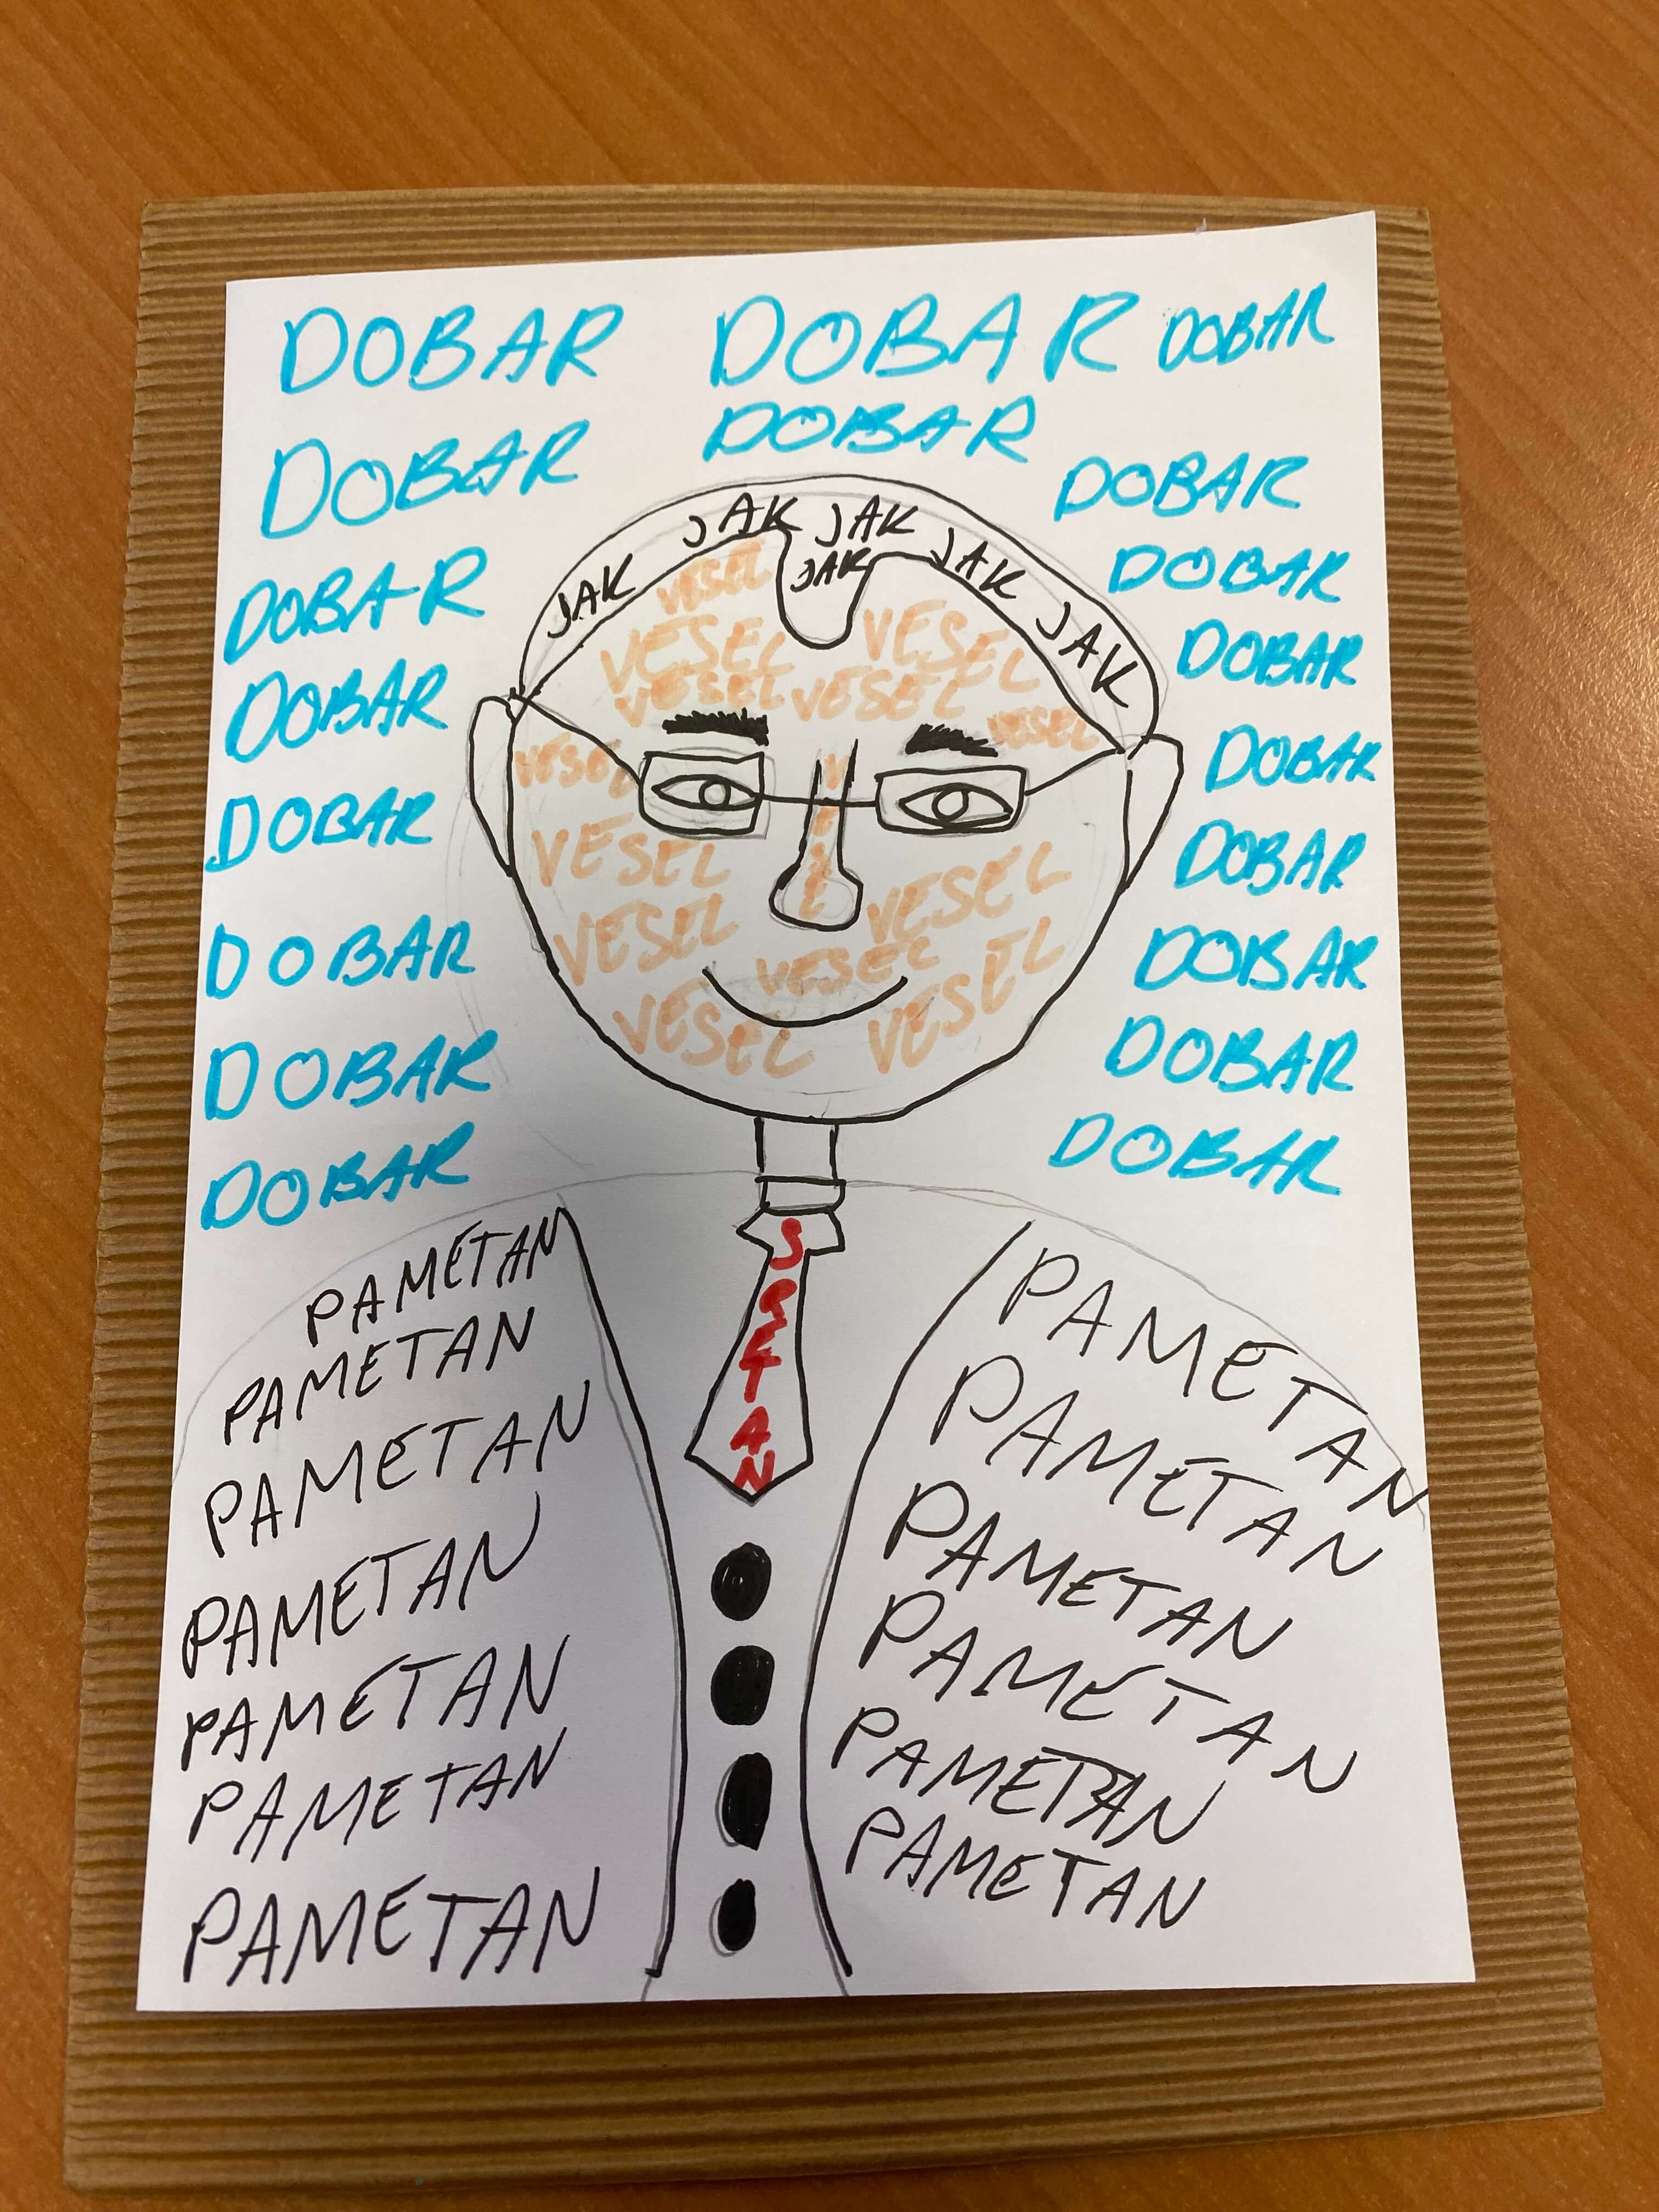 DOBAR DOBAR DOBAR
DOBAR
DOBAR DOBAR
JAK JAK JAK JAK JAK
JAK
DOBAR DOBAR
VESEL
DOBAR DOBAR
VESEL VESEL
VESEL VESEL
VESEL
DOBAR DOBAR
VESEL
VESEL
DOBAR DOBAR
VESEL VESEL
VESEL
DOBAR DOBAR
VESEL
VESEL VESEL
DOBAR DOBAR
DOBAR DOBAR
SRETAN
PAMETAN
PAMETAN
PAMETAN
PAMETAN
PAMETAN
PAMETAN
PAMETAN
PAMETAN
PAMETAN
PAMETAN
PAMETAN
PAMETAN
PAMETAN